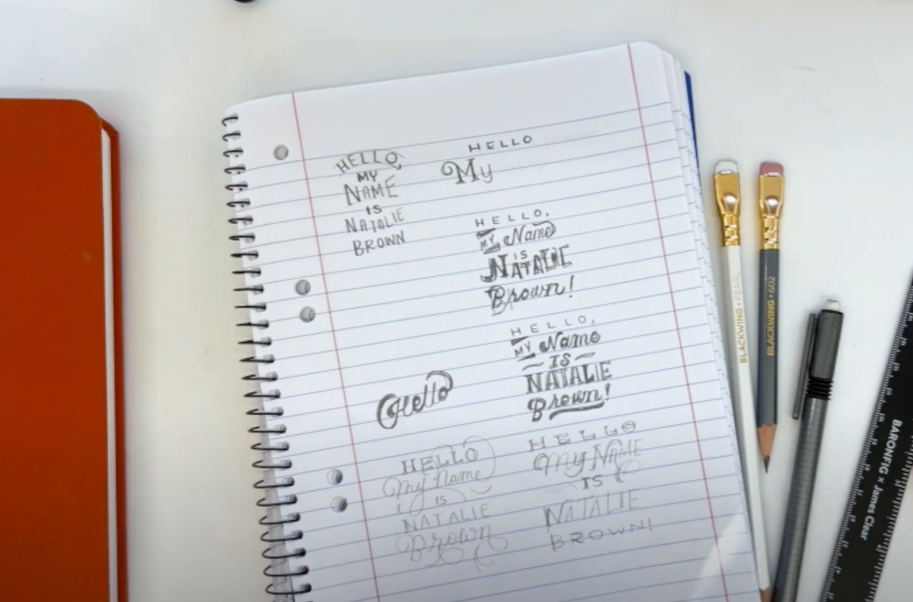 HELLO,
MY
NAME
IS
NATALIE
BROWN
HELLO
My
HELLO,
MY Name
IS
NATALIE
Brown!
HELLO,
MY Name
IS
NATALIE
Brown!
Hello
HELLO
My Name
IS
NATALIE
Brown
HELLO
My NAME
IS
NATALIE
BROWN!
BLACKWING PEARL
BLACKWING 602
BARONFIG x James Clear